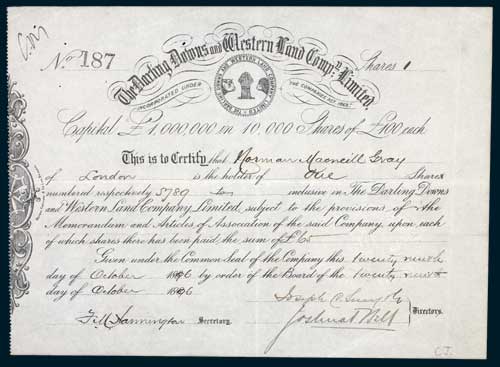 No. 187
Shares 1
The Darling Downs and Western Land Compy. Limited.
INCORPORATED UNDER THE COMPANIES ACT 1863.
THE DARLING DOWNS AND WESTERN LAND COMPANY LIMITED
Capital £1,000,000 in 10,000 Shares of £100 each
This is to Certify that Norman Macneill Gray
of London is the holder of One Shares
numbered respectively 5789 inclusive in The Darling Downs
and Western Land Company Limited, subject to the provisions of the
Memorandum and Articles of Association of the said Company, upon each
of which shares there has been paid the sum of £65
Given under the Common Seal of the Company this twenty ninth
day of October 1896 by order of the Board of the twenty ninth
day of October 1896
Secretary.
Joshua T Bell
Directors.